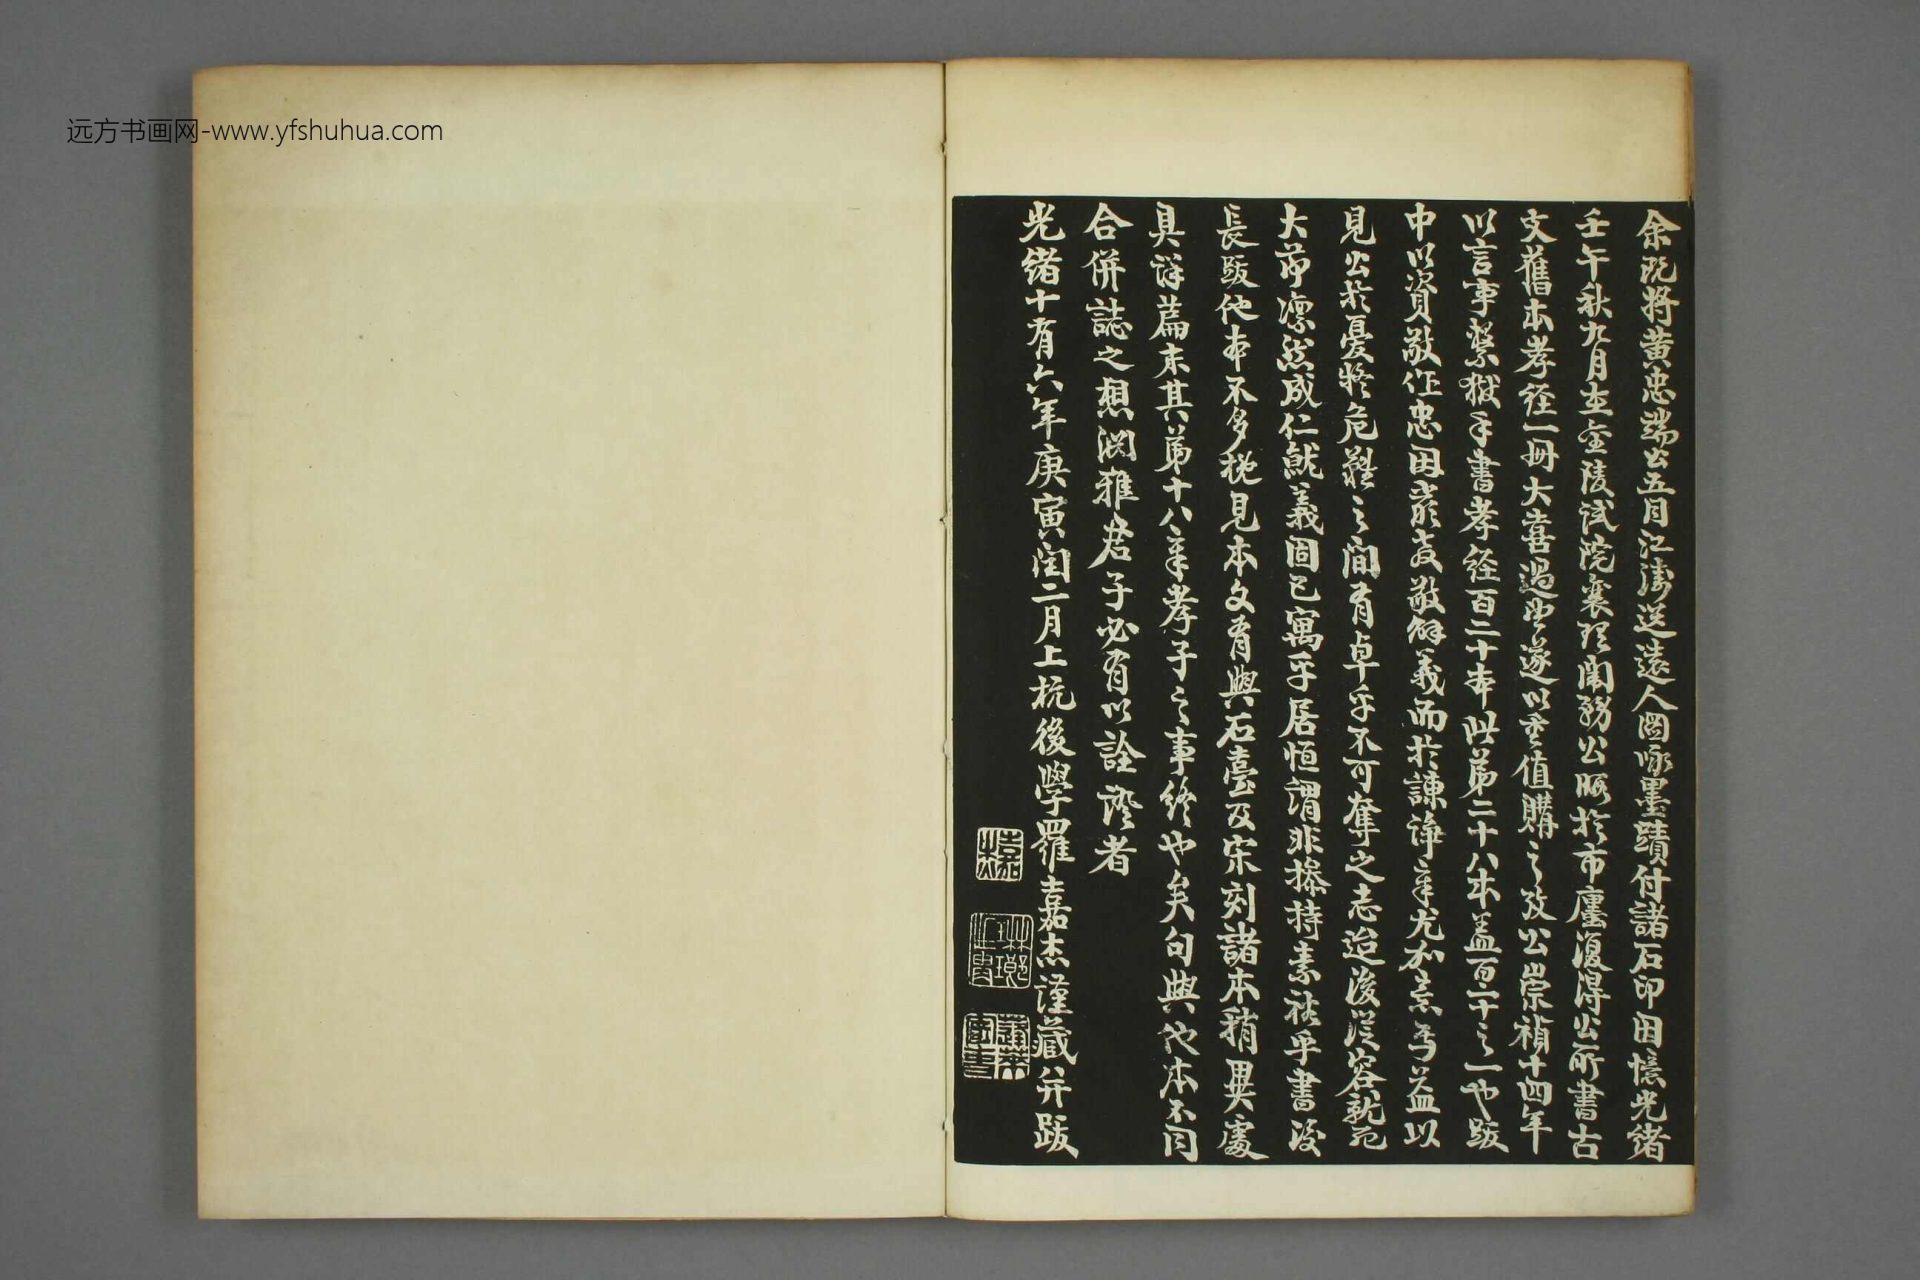 远方书画网-www.yfshuhua.com
余既将黄忠端公五月江涛送远人图咏墨蹟付諸石印因憶光緒
壬午秋九月在金陵試院襄理闈務公暇於市廛復得公所書古
文舊本孝经一册大喜過望遂以重值購之攷公崇禎十四年
以言事繫獄手書孝经百二十本此第二十八本盖百二十之一也跋
中以資敬作忠因嚴教敬解義而於諫諍章尤加意焉益以
見公於憂疑危難之間有卓乎不可奪之志迨後從容就死
大節凛然成仁就義固已寓乎居恒謂非操持素裕乎書後
長跋他本不多概見本文有與石臺及宋刻諸本稍異處
具詳篇末其第十八章孝子之事終也矣句與他本不同
合併誌之想淵雅君子必有以詮證者
光绪十有六年庚寅闰二月上杭後學羅嘉杰謹藏并跋
嘉杰